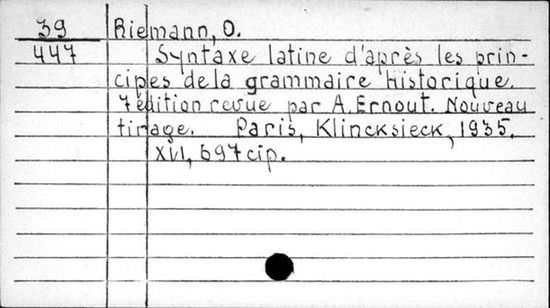 39 Riemann, O.
447 Syntaxe latine d'après les prin-
cipes de la grammaire historique.
7 édition revue par A. Ernout. Nouveau
tirage. Paris, Klincksieck, 1935.
XII, 697 cip.